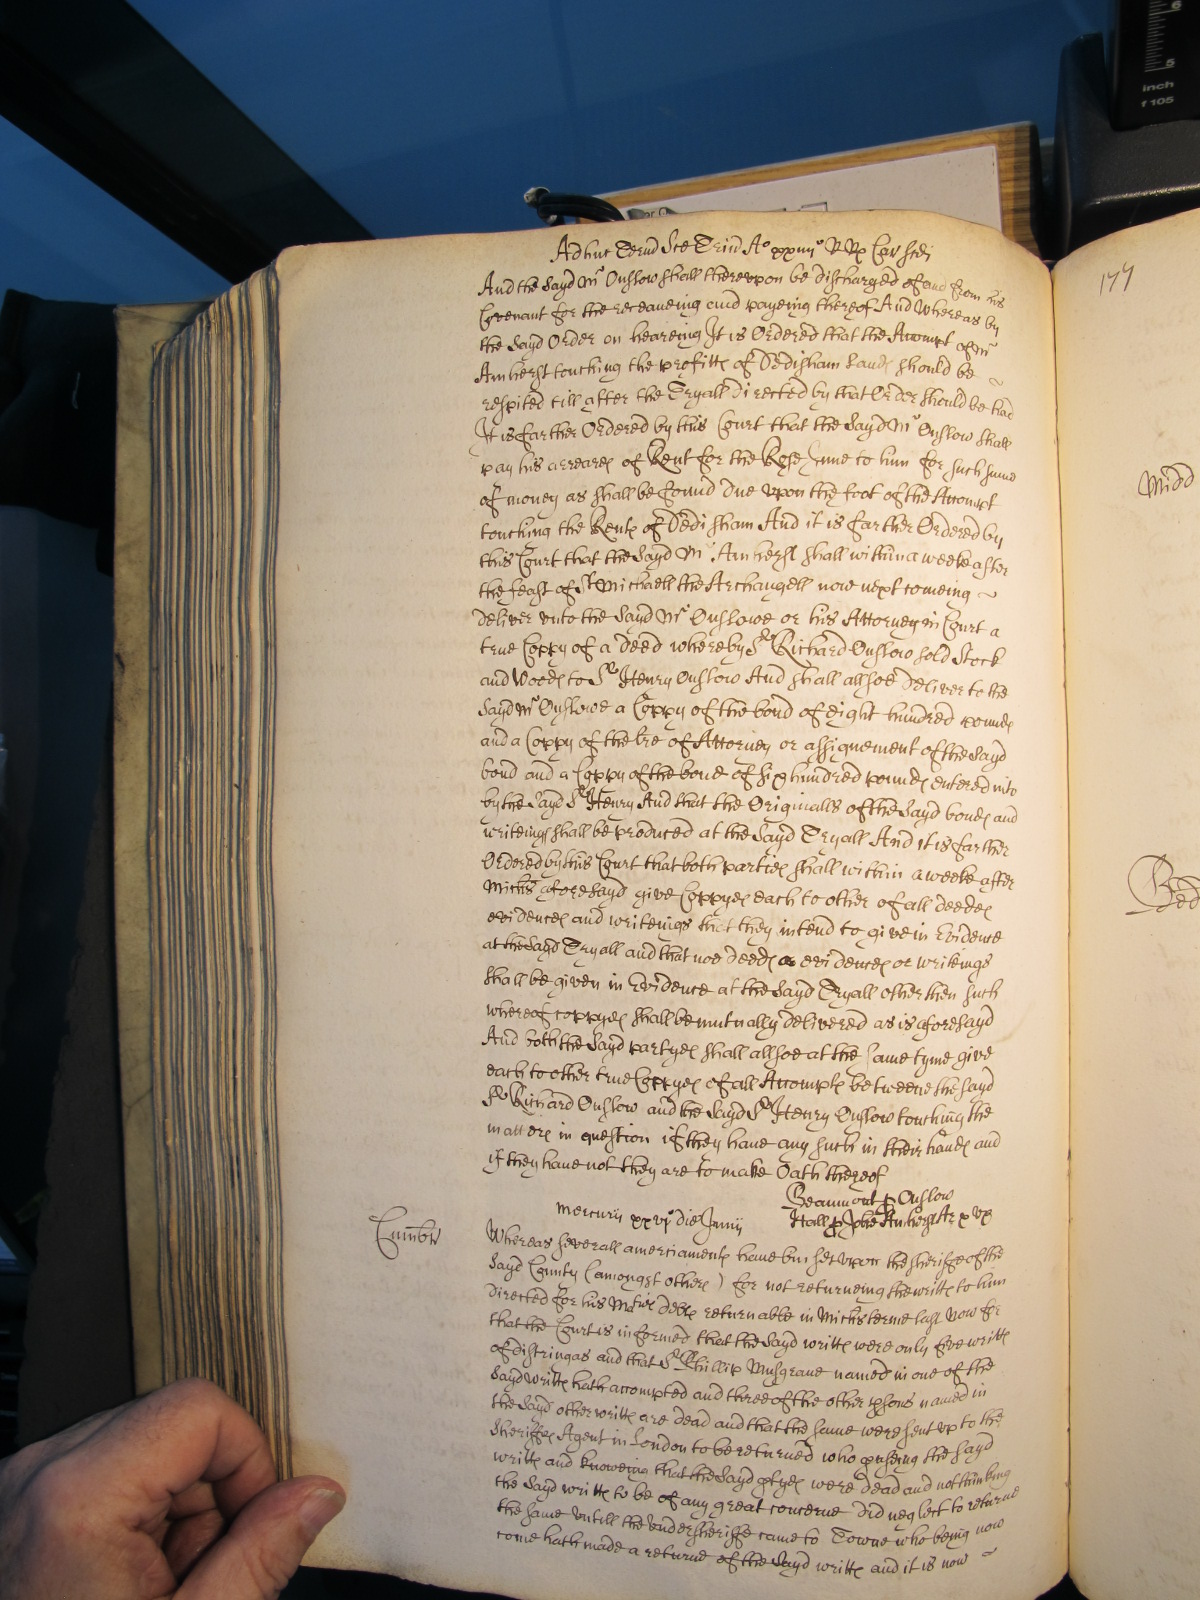 Adhuc Termd Sce Trin Ao xxiiijo R Rx Car scdi
And the Sayd Mr Onslow shall therevpon be discharged of and from his
Covenant for the receaveing and payeing thereof And Whereas by
the Sayd Order on heareing It is Ordered that the Accompt of Mr
Amherst touching the profitts of Dedisham Lands should be
respited till after the Tryall Directed by that Order should be had
It is farther Ordered by this Court that the Sayd Mr Onslow shall
pay his arreares of Rent for the to him for such sume
of money as shall be found due vpon the foot of the Accompt
touching the Rents of Dedisham And it is farther Ordered by
this Court that the Sayd Mr Amherst shall within a weeke after
the feast of St Michaell the Archangell now next comeing
deliver vnto the Sayd Mr Onslowe or his Attorney in Court a
true Coppy of a Deed whereby Sr Richard Onslow sold Stock
and Woods to Sr Henry Onslow And shall allsoe deliver to the
Sayd Mr Onslowe a Coppy of the bond of Eight hundred pounds
and a Coppy of the lre of Attorney or assignement of the Sayd
bond and a Coppy of the bond of six hundred pounds entered into
by the Sayd Sr Henry And that the Originalls of the Sayd bonds and
writeings shall be produced at the Sayd Tryall And it is farther
Ordered by this Court that both parties shall within a weeke after
Michs aforesayd give Coppyes each to other of all deedes
evidences and writeings that they intend to give in Evidence
at the Sayd Tryall and that noe deeds or evidences or writeings
shall be given in Evidence at the Sayd Tryall other then such
whereof coppyes shall be mutually delivered as is aforesayd
And both the Sayd partyes shall allsoe at the same tyme give
each to other true Coppyes of all Accompts betweene the sayd
Sr Richard Onslow and the Sayd Sr Henry Onslow touching the
matters in question if they have any such in their hands and
if they have not they are to make Oath thereof
Beaumont p Onslow
Mercurij xxvjo die Junij Hall p Amherst Ar
Cumbr
Whereas severall amerciaments have bin set vpon the sheriffe of the
Sayd County (amongst others) for not returneing the writts to him
directed for his Maties debts returnable in Michs terme last Now for
that the Court is informed that the Sayd writts were only five writts
of distringas and that Sr Phillip Musgrave named in one of the
Sayd writts hath accompted and three of the other psons named in
the Sayd other writts are dead and that the same were sent vp to the
Sheriffes Agent in London to be returned who puseing the Sayd
writts and knoweing that the Sayd ptyes were dead and not thinking
the Sayd writts to be of any great concerne did neglect to returne
the same vntill the vndersheriffe came to Towne who being now
come hath made a returne of the Sayd writts and it is now
177
Midd
Bed
inch
f 105
5
6